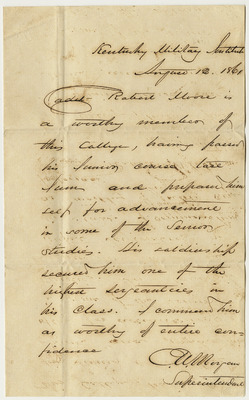 Kentucky Military Institute
August 12. 1861
Cadet Robert Moore is
a worthy member of
this College, having passed
his Junior course last
June and prepared him
self for advancement
in some of the Senior
studies. His soldiership
secured him one of the
highest sergeantcies in
his Class. I commend him
as worthy of entire con-
fidence
Morgan
Superintendent